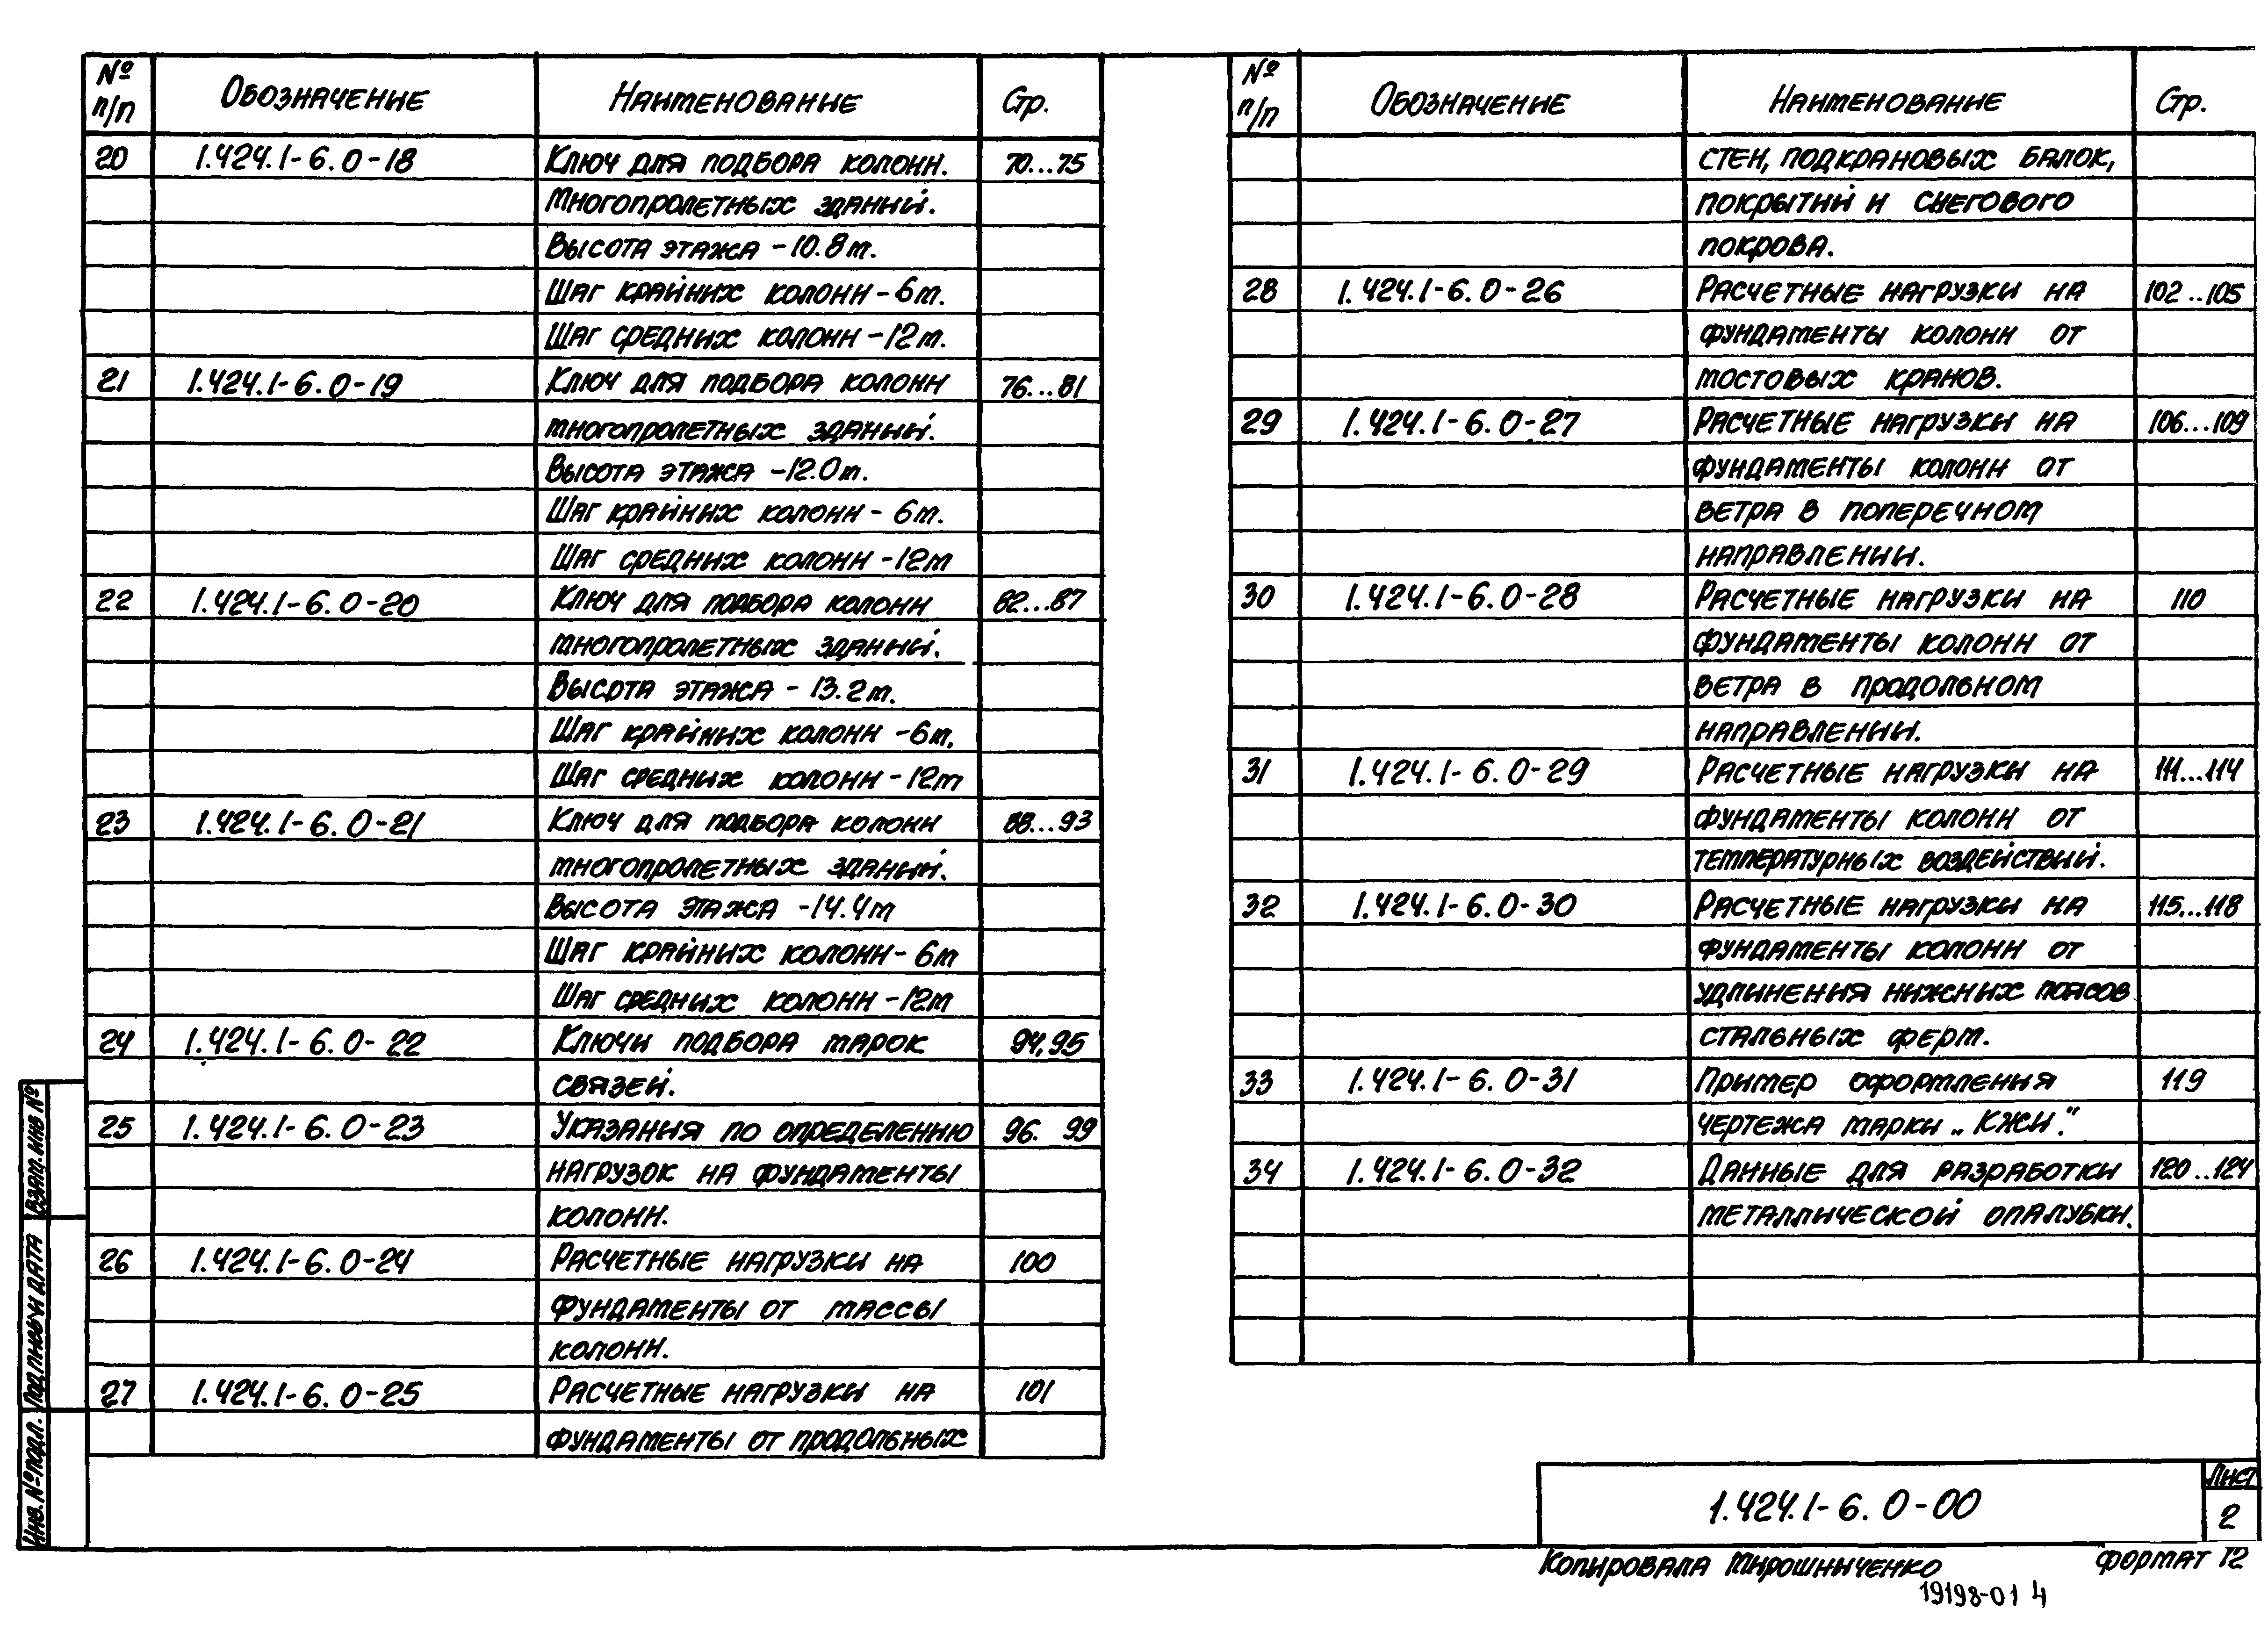 № п/п Обозначение Наименование Стр.
20 1.424.1-6.0-18 Ключ для подбора колонн. 70...75
Многопролетных зданий.
Высота этажа - 10.8м.
Шаг крайних колонн - 6м.
Шаг средних колонн - 12м.
21 1.424.1-6.0-19 Ключ для подбора колонн 76...81
многопролетных зданий.
Высота этажа - 12.0м.
Шаг крайних колонн - 6м.
Шаг средних колонн - 12м
22 1.424.1-6.0-20 Ключ для подбора колонн 82...87
многопролетных зданий.
Высота этажа - 13.2м.
Шаг крайних колонн - 6м.
Шаг средних колонн - 12м
23 1.424.1-6.0-21 Ключ для подбора колонн 88...93
многопролетных зданий.
Высота этажа - 14.4м
Шаг крайних колонн - 6м
Шаг средних колонн - 12м
24 1.424.1-6.0-22 Ключи подбора марок 94,95
связей.
25 1.424.1-6.0-23 Указания по определению 96. 99
нагрузок на фундаменты
колонн.
26 1.424.1-6.0-24 Расчетные нагрузки на 100
фундаменты от массы
колонн.
27 1.424.1-6.0-25 Расчетные нагрузки на 101
фундаменты от продольных
№ п/п Обозначение Наименование Стр.
стен, подкрановых балок,
покрытий и снегового
покрова.
28 1.424.1-6.0-26 Расчетные нагрузки на 102..105
фундаменты колонн от
мостовых кранов.
29 1.424.1-6.0-27 Расчетные нагрузки на 106...109
фундаменты колонн от
ветра в поперечном
направлении.
30 1.424.1-6.0-28 Расчетные нагрузки на 110
фундаменты колонн от
ветра в продольном
направлении.
31 1.424.1-6.0-29 Расчетные нагрузки на 111...114
фундаменты колонн от
температурных воздействий.
32 1.424.1-6.0-30 Расчетные нагрузки на 115...118
фундаменты колонн от
удлинения нижних поясов
стальных ферм.
33 1.424.1-6.0-31 Пример оформления 119
чертежа марки „КЖИ".
34 1.424.1-6.0-32 Данные для разработки 120..124
металлической опалубки.
Взам. инв №
Подпись и дата
Инв. № подл.
1.424.1-6.0-00
Лист
2
Копировала Мирошниченко
формат 12
19198-01 4